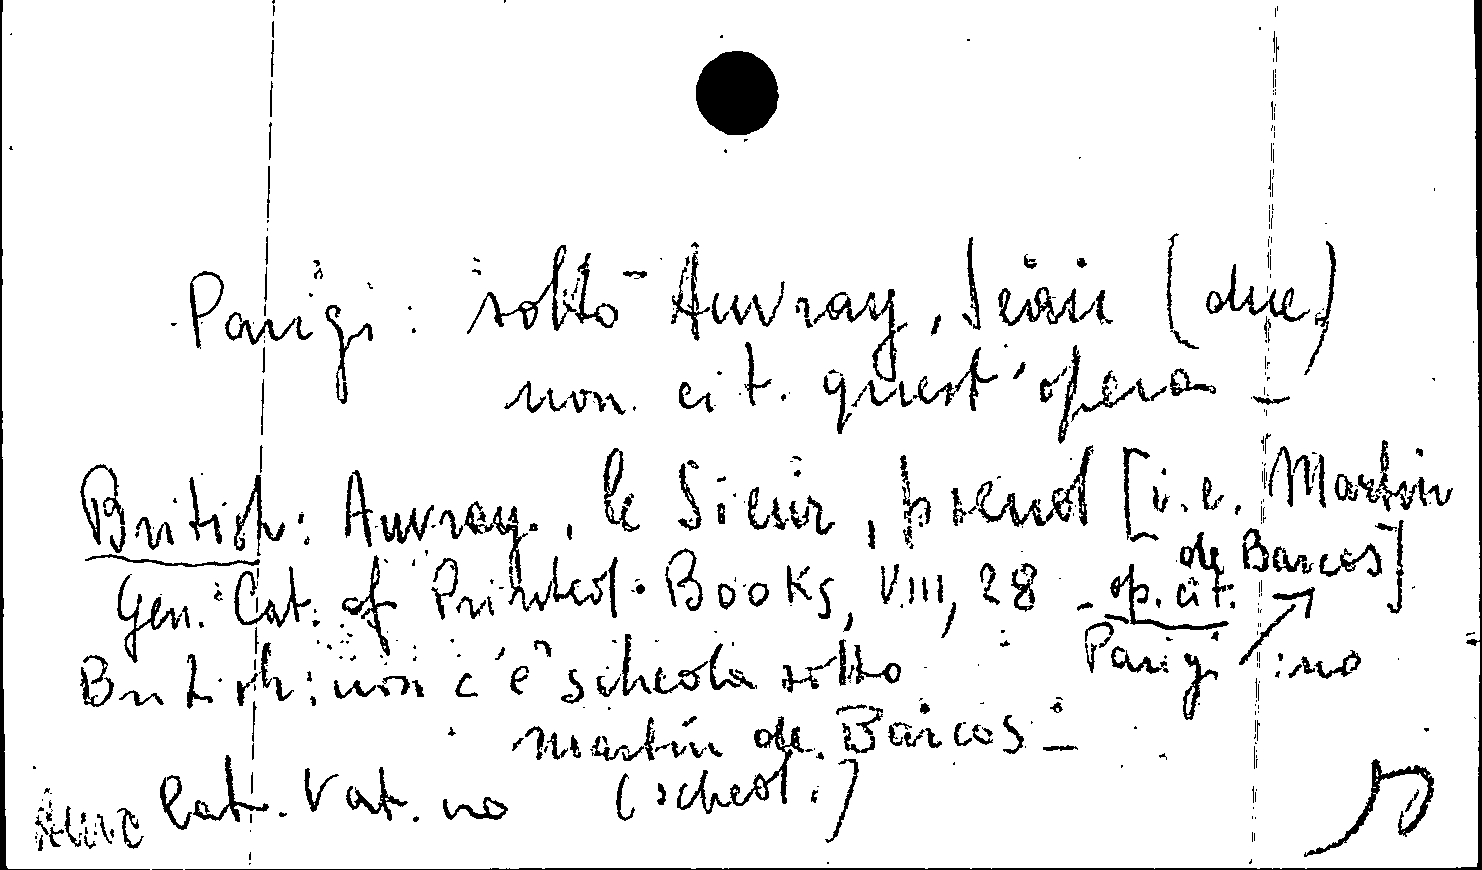 Parigi: sotto Auvray, Jean (due)
non cit. quest'opera –
British: Auvray, le Sieur, pseud [i.e. Martin
de Barcos]
Gen. Cat. of Printed Books, VIII, 28 – op. cit.
Parigi : no
British: non c'è scheda sotto
Martin de Barcos –
Cat. Vat. no (sched.)